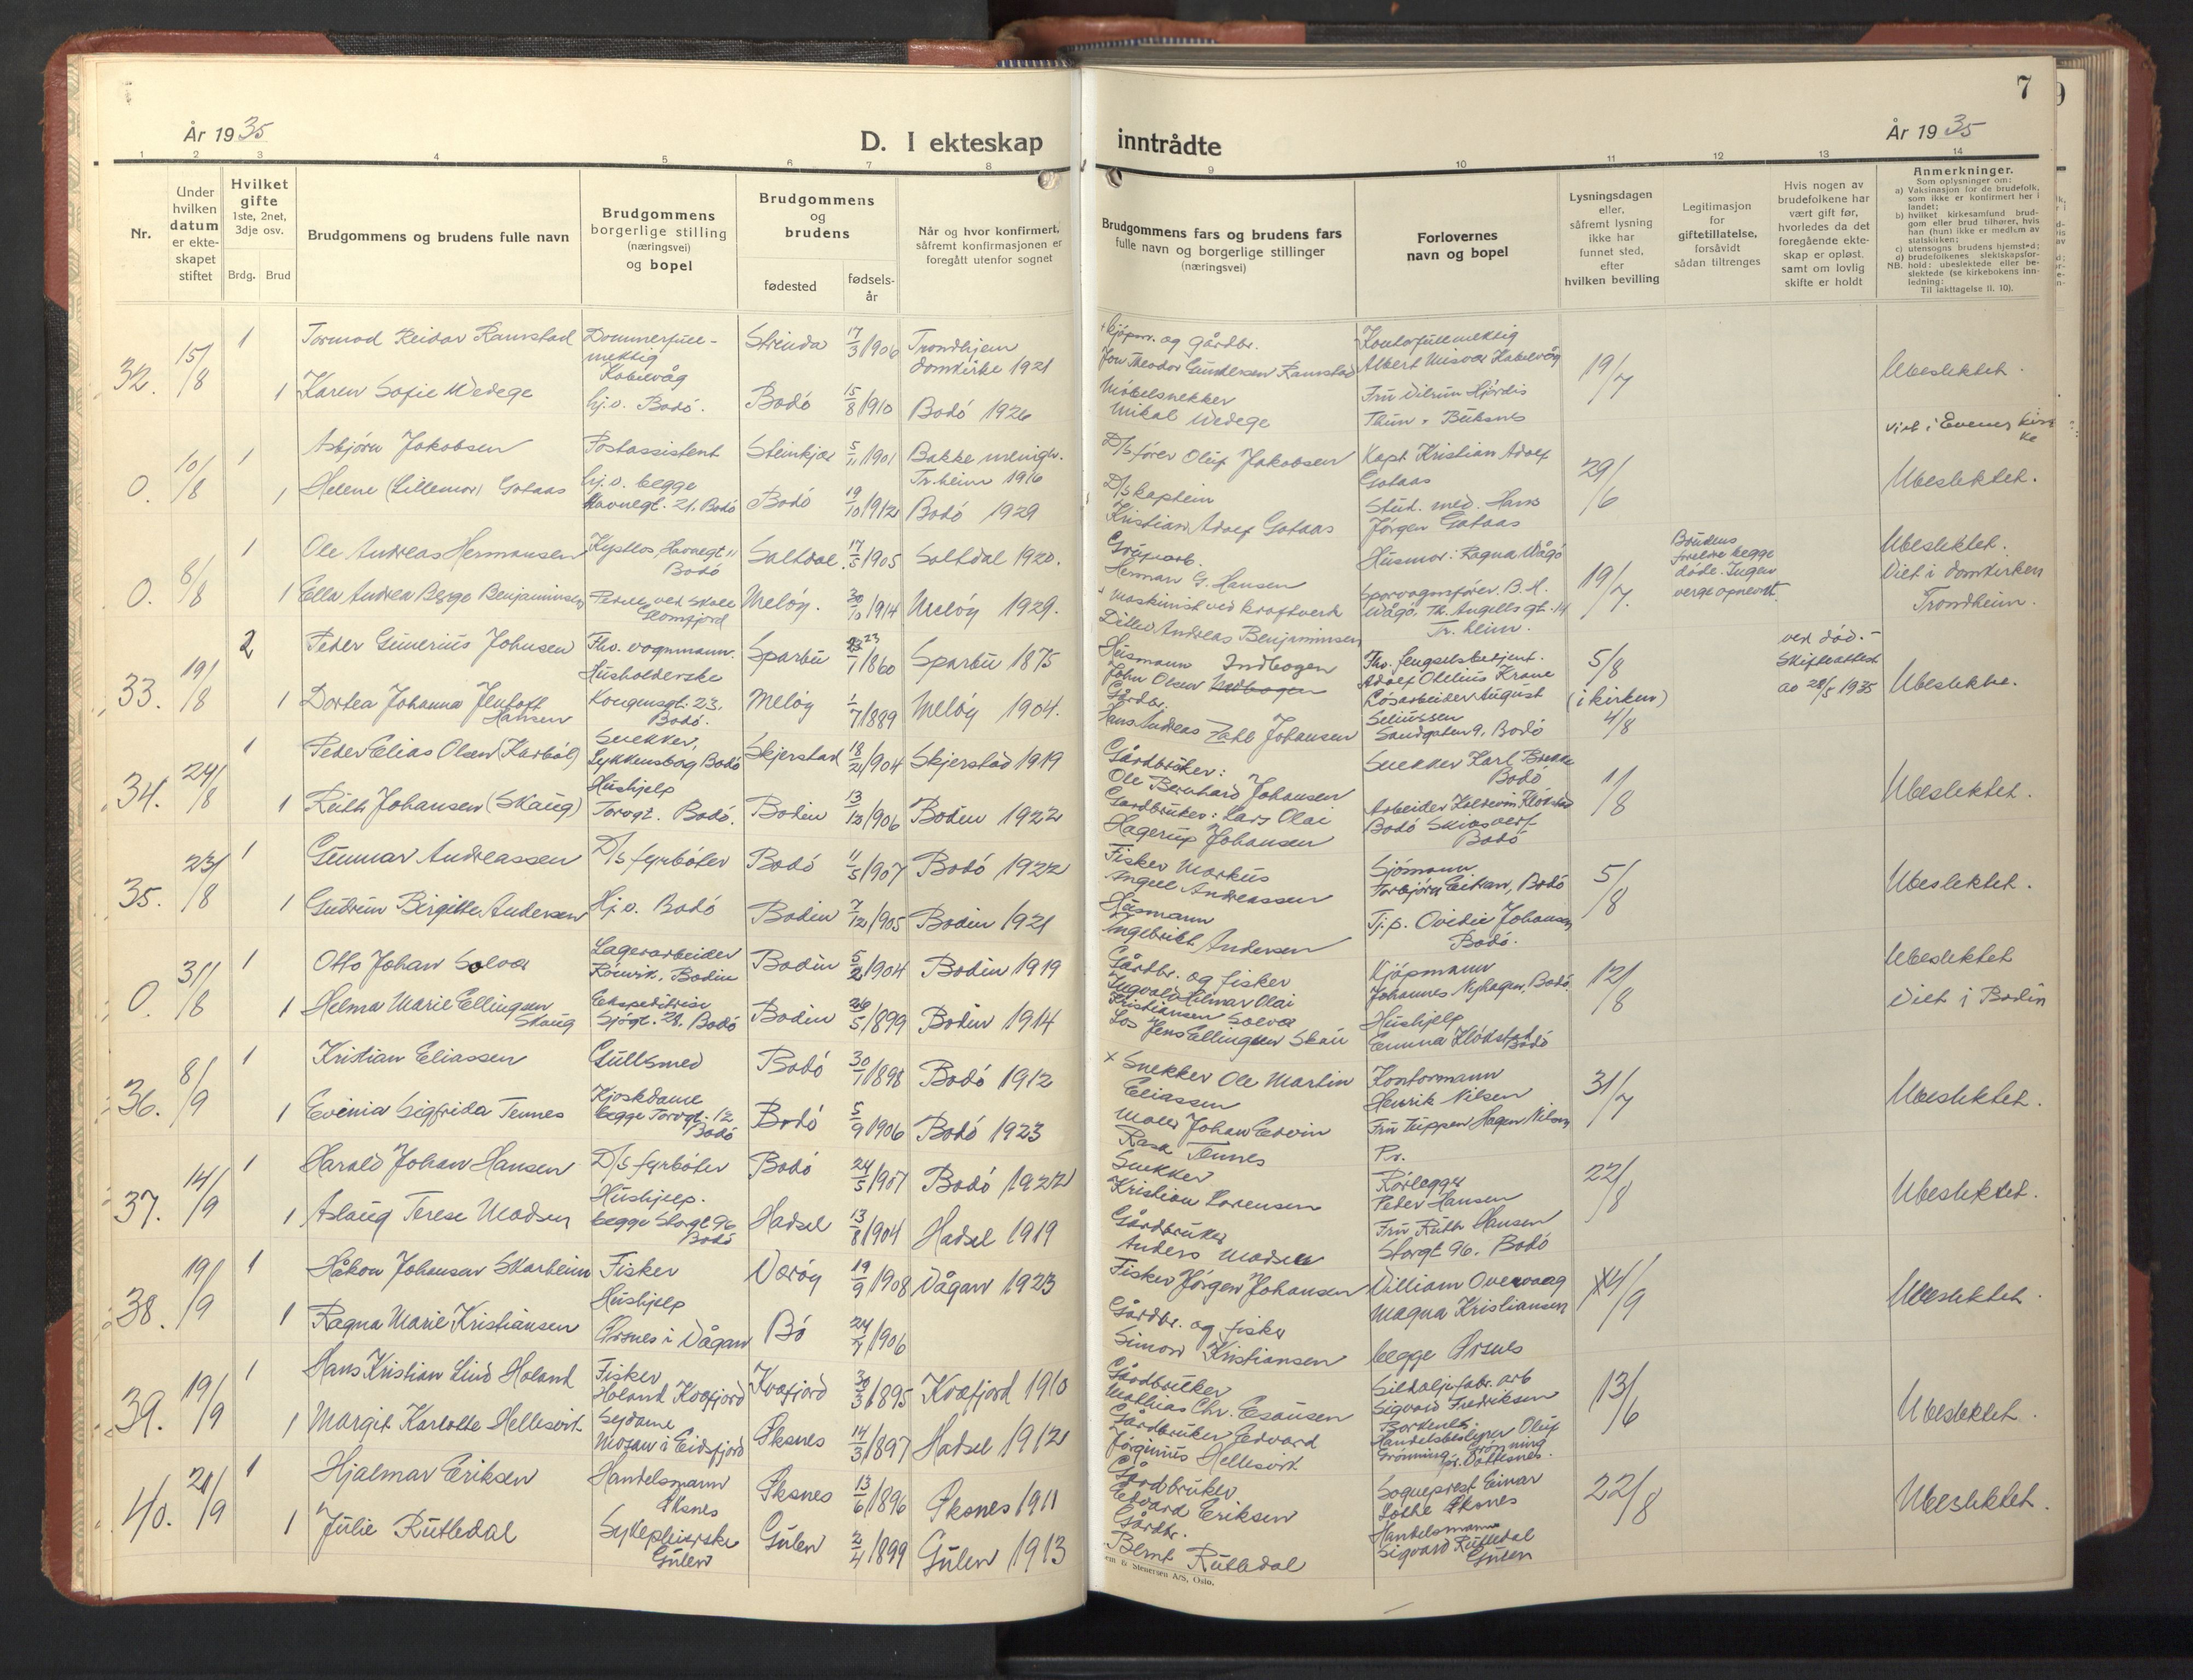 År 1935
D. I ekteskap
1 2 3 4 5 6 7 8
Nr.
Under hvilken datum er ekteskapet stiftet
Hvilket gifte
1ste, 2net, 3dje osv.
Brdg. Brud
Brudgommens og brudens fulle navn
Brudgommens borgerlige stilling (næringsvei) og bopel
Brudgommens og brudens
fødested
fødselsår
Når og hvor konfirmert, såfremt konfirmasjonen er foregått utenfor sognet
32. 15/8 1 Tormod Reidar Ramstad Dommerfull-
mektig
Kabelvåg Strinda 17/3 1906 Trondhjem
domkirke 1921
1 Karen Sofie Wedege hj.o. Bodö. Bodö 15/8 1910 Bodö 1926
0. 10/8 1 Asbjörn Jakobsen Postassistent Steinkjær 5/11 1901 Bakke menigh.
Tr.heim 1916
1 Helene (Lillemor) Gotaas hj.o. begge
Havnegt. 21. Bodö Bodö 19/10 1912 Bodö 1929
0. 8/8 1 Ole Andreas Hermansen Kystlos, Havnegt 11
Bodö Saltdal. 17/5 1905 Saltdal 1920.
1 Ella Andrea Berge Benjaminsen ved skole
Glomfjord Melöy. 30/10 1914 Melöy 1929.
33. 19/8 2 Peder Gunerius Johnsen Fhv. vognmann. Sparbu 23/1 1860 Sparbu 1875
1 Dortea Johanna Jentoft
Hansen Husholderske
Kongensgt. 23.
Bodö. Melöy 1/7 1889 Melöy 1904.
34. 24/8 1 Peder Elias Olsen (Karböl) Snekker,
Lykkensborg Bodö Skjerstad 18/2 1904 Skjerstad 1919
1 Ruth Johansen (Skaug) Hushjelp
Torvgt. Bodö. Bodin 13/12 1906 Bodin 1922
35. 23/8 1 Gunnar Andreassen D/s fyrböter Bodö 11/5 1907 Bodö 1922
1 Gudrun Birgitte Andersen Hj.o. Bodö Bodin 7/12 1905 Bodin 1921
0. 31/8 1 Otto Johan Solvær Lagerarbeider
Rönvik, Bodin Bodin 5/2 1904 Bodin 1919
1 Helma Marie Ellingsen
Skaug Ekspeditrise
Sjögt. 28. Bodö Bodin 26/5 1899 Bodin 1914
36. 8/9 1 Kristian Eliassen Gullsmed Bodö 30/1 1898 Bodö 1912
1 Evinia Sigfrida Tennes Kjoskdame
begge Torvgt. 12
Bodö Bodö 5/9 1906 Bodö 1923
37. 14/9 1 Harald Johan Hansen D/s fyrböter Bodö 24/5 1907 Bodö 1922
1 Aslaug Terese Madsen Hushjelp.
begge Storgt 96
Bodö Hadsel 13/8 1904 Hadsel 1919
38. 19/9 1 Håkon Johansen Skarheim FiskerVæröy 19/9 1908 Vågan 1923
1 Ragna Marie Kristiansen Hushjelp
Örsnes i Vågan Bö 24/7 1906
39. 19/9 1 Hans Kristian Lind Holand Fisker
Holand Kvæfjord Kvæfjord 30/3 1895 Kvæfjord 1910
1 Margit Karlotte Hellesvik Sydame
i Eidsfjord Öksnes 14/3 1897 Hadsel 1912
40. 21/9 1 Hjalmar Eriksen Handelsmann
Öksnes Öksnes 13/6 1896 Öksnes 1911
1 Julie Rutledal Sykepleierske
Gulen Gulen 2/4 1899 Gulen 1913
7
inntrådte
År 1935
9 10 11 12 13 14
Brudgommens fars og brudens fars fulle navn og borgerlige stillinger (næringsvei)
Forlovernes navn og bopel
Lysningsdagen eller, såfremt lysning ikke har funnet sted, efter hvilken bevilling
Legitimasjon for giftetillatelse, forsåvidt sådan tiltrenges
Hvis nogen av brudefolkene har vært gift før, hvorledes da det foregående ekteskap er opløst, samt om lovlig skifte er holdt
Anmerkninger.
Som oplysninger om:
a) Vaksinasjon for de brudefolk, som ikke er konfirmert her i landet;
b) hvilket kirkesamfund brudgom eller brud tilhører, hvis han (hun) ikke er medlem av statskirken;
c) utensogns brudens hjemsted;
d) brudefolkenes slektskapsforhold: ubeslektede eller beslektede (se kirkebokens innledning:
NB. Til iakttagelse II. 10).
+ kjöpm. og gårdbr.
Jon Theodor Gundersen Ramstad
Kontorfullmektig
Albert Misvær Kabelvåg
19/7
Ubeslektet.
Möbelsnekker
Mikal Wedege
Fru Hjördis
Thun, Buksnes
D/s förer Oluf Jakobsen
Kapt. Kristian Adolf
Gotaas
29/6
viet i Evenes kir
ke
Ubeslektet.
D/s kaptein
Kristian Adolf Gotaas
Stud. med. Hans
Jörgen Gotaas
Grubearb.
Herman G. Hansen
Husmor: Ragna Wågö
19/7.
Brudens
foreldre begge
döde. Ingen
verge opnevnt.
Ubeslektet.
Viet i domkirken
Trondheim.
+ Maskinist ved kraftverk
Ditlev Andreas Benjaminsen
Sporvognsförer. B.M.
Wågö, Th. Angells gt. 14
Tr.heim.
Husmann Indbogen
John Olsen
Fhv. fengselsbetjent.
Adolf Otelius Krane
5/8
(i kirken)
4/8
ved död. -
Skifteattest
av 28/5 1935
Ubeslektet.
Gårdbr.
Hans Andreas Zahl Johansen
Lösarbeider August
Seliussen
Sandgaten 9. Bodö
Gårdbruker:
Ole Bernhard Johansen
Snekker Karl
Bodö
1/8
Ubeslektet.
Gardbruker: Lars Olai
Hagerup Johansen
Arbeider
Bodö Skibsverf
Bodö
Fisker Markus
Andreassen
Sjömann
Torbjörn, Bodö
5/8
Ubeslektet.
Husmann
Ingebrikt Andersen
Tj.p. Ovidie Johansen
Bodö.
Gårdbr. og fisker
Ingvald Hilmar Olai
Kristiansen Solvær
Kjöpmann
Johannes Nyhagen, Bodö.
12/8
Ubeslektet
Viet i Bodin
Los Jens Ellingsen Skau
Hushjelp
Emma Klödstad
Bodö
x Snekker Ole Martin
Eliassen
Kontormann
Henrik Nilsen
31/7
Ubeslektet.
Maler Johan Edvin
Rask Tennes
Fru Tuppen Hagen Nilsen
Snekker
Kristian Lorensen
Rörlegger
Peder Hansen
22/8
Ubeslektet.
Gårdbruker
Anders Madsen
Fru Ruth Hansen
Storgt 96. Bodö
Fisker Jörgen Johansen
William Overvaag
4/9
Ubeslektet.
Gårdbr. og fisker
Simon Kristiansen
Magna Kristiansen
begge Örsnes
Gårdbruker
Mathias Chr. Esaussen
Sildoljefabr. arb
Sigvard Fredriksen
Borkenes
13/6
Ubeslektet.
Gårdbruker Edvard
Jörginus Hellesvik
Handelsbestyrer Oluf
Grönning
Gårdbruker
Edvard Eriksen
Sogneprest Einar
Lothe Öksnes
22/8
Ubeslektet.
Gårdbr.
Bernt Rutledal
Handelsmann
Sigvard Rutledal
Gulen
& Stenersen A/S, Oslo.